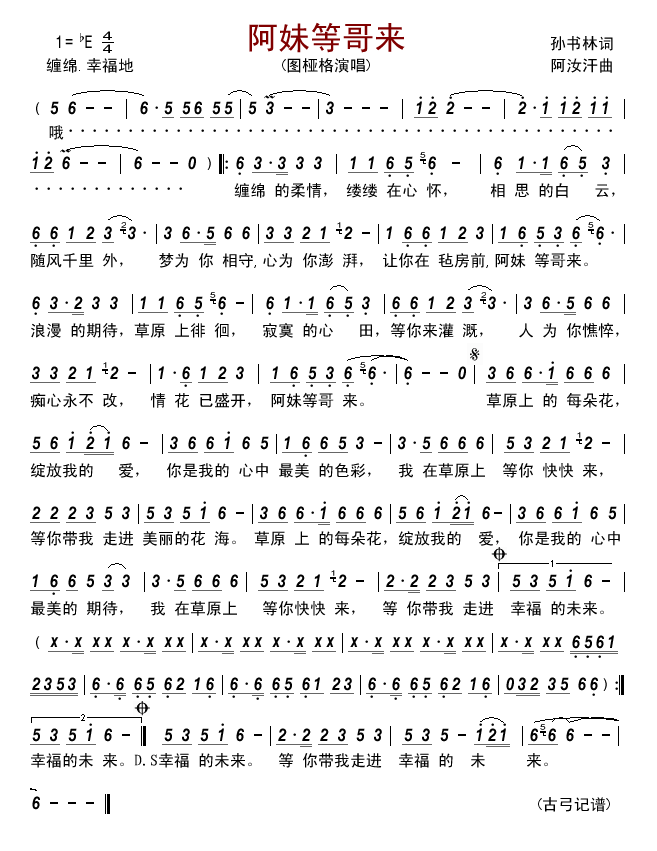 阿妹等哥来
1=♭E 4/4
孙书林词
缠绵.幸福地
(图桠格演唱)
阿汝汗曲
( 5 6 - - | 6·5 56 55 | 5 3 - 3 - - | 12 2 - - | 2·1 12 11 |
哦····················
12 6 - - | 6 - - 0 ) ‖: 6 3·3 3 3 | 1 1 6 5 6 - | 6 1·1 6 5 3 |
缠绵 的柔情， 缕缕 在心 怀， 相 思 的白 云，
6 6 1 2 3 2 3· | 3 6·5 6 6 | 3 3 2 1 1 2 - | 1 6 6 1 2 3 | 1 6 5 3 6 5 6· |
随风千里 外， 梦为 你 相守,心为 你澎 湃， 让你在 毡房前,阿妹 等哥来。
6 3·2 3 3 | 1 1 6 5 5 6 - | 6 1·1 6 5 3 | 6 6 1 2 3 2 3· | 3 6·5 6 |
浪漫 的期待，草原 上徘 徊， 寂寞 的心 田，等你来灌 溉， 人 为 你憔悴，
3 3 2 1 1 2 - | 1·6 1 2 3 | 1 6 5 3 6 5 6· | 6 - - 0 | 3 6 6·1 6 6 6 |
痴心永不 改， 情 花 已盛开， 阿妹等哥 来。 草原上 的 每朵花，
5 6 1 2 1 6 - | 3 6 6 1 6 5 | 1 6 6 5 3 - | 3·5 6 6 6 | 5 3 2 1 1 2 - |
绽放我的 爱， 你是我的 心中 最美 的色彩， 我 在草原上 等你 快快 来，
2 2 2 2 3 5 3 | 5 3 5 1 6 - | 3 6 6·1 6 6 6 | 5 6 1 2 1 6 - | 3 6 6 1 6 5 |
等你带我 走进 美丽的花 海。 草原 上 的每朵花，绽放我的 爱， 你是我的 心中
1 6 6 5 3 3 | 3·5 6 6 6 | 5 3 2 1 1 2 - | 2·2 2 2 3 5 3 | 1 5 3 5 1 6 - |
最美的 期待， 我 在草原上 等你快快 来， 等 你带我 走进 幸福 的未来。
( x·x xx x·x xx | x·x xx x·x xx | x·x xx x·x xx | x·x xx 6561 |
2353 | 6·6 65 62 16 | 6·6 65 61 23 | 6·6 65 62 16 | 032 35 66 ) :‖
2
5 3 5 1 6 - ‖ 5 3 5 1 6 - | 2·2 2 3 5 3 | 5 3 5 - 121 | 6 5 6 6 - - |
幸福的未 来。D.S幸福 的未来。 等 你带我走进 幸福 的 未 来。
6 - - - ‖
(古弓记谱)